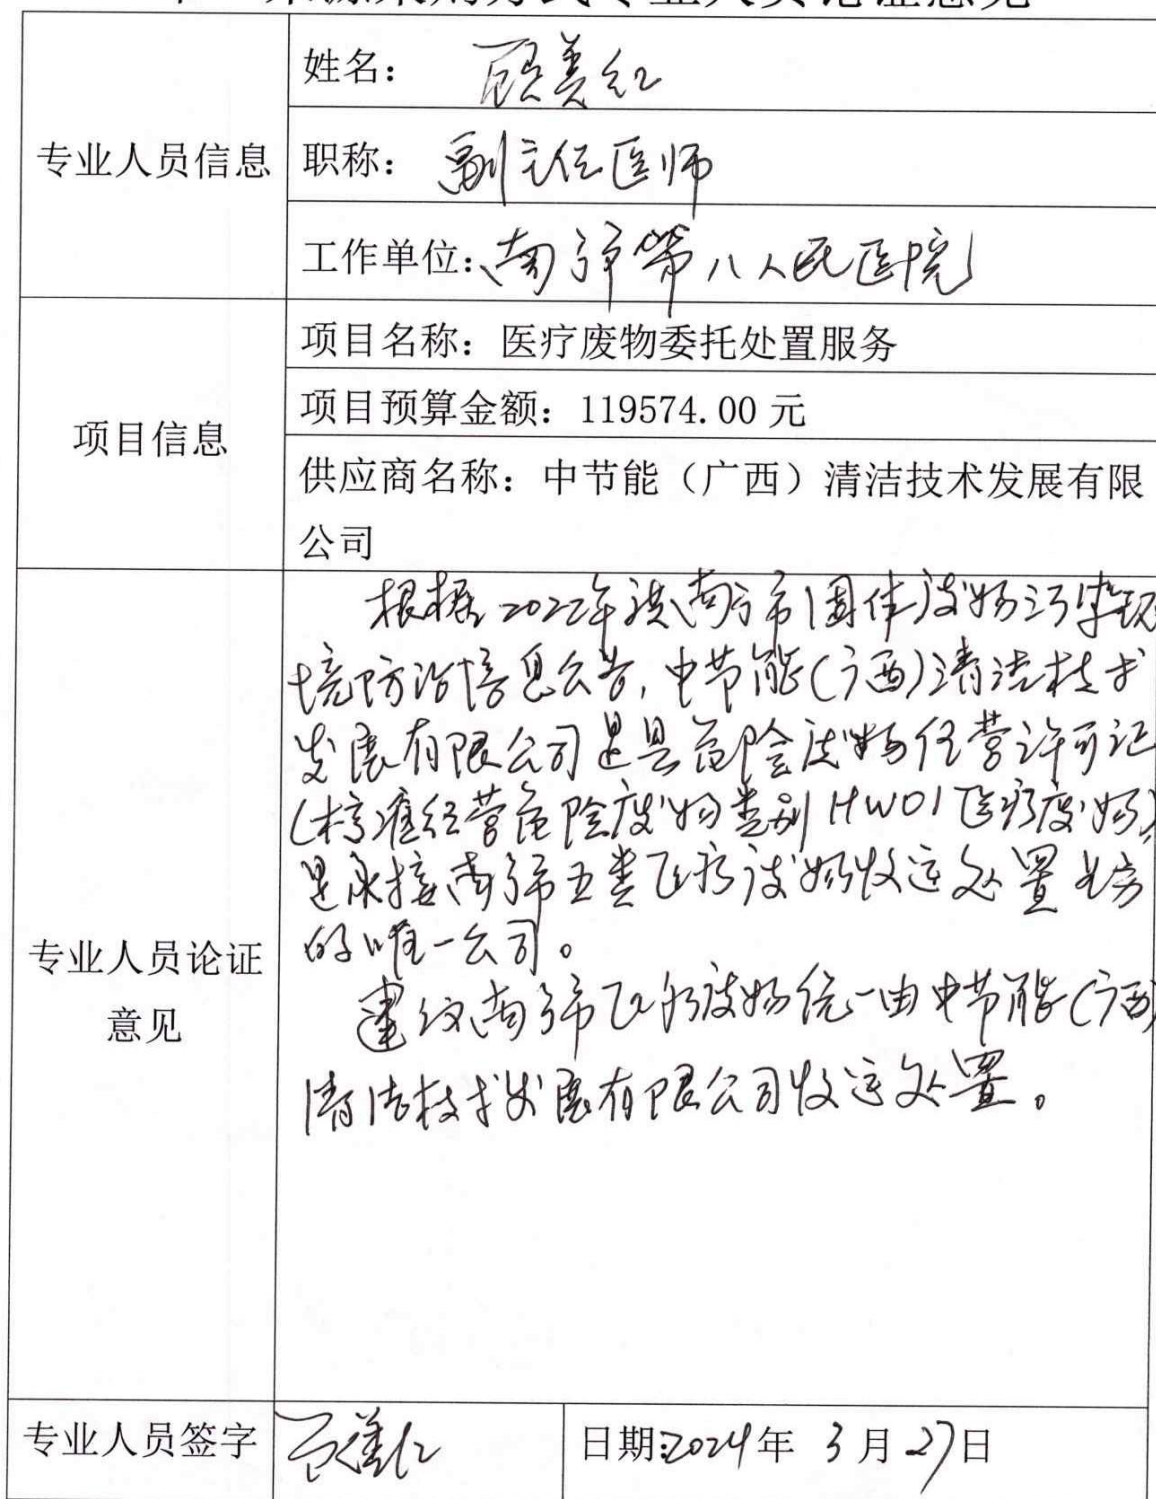 单一来源采购方式专业人员论证意见
专业人员信息
姓名：顾美红
职称：副主任医师
工作单位：南宁市第八人民医院
项目信息
项目名称：医疗废物委托处置服务
项目预算金额：119574.00 元
供应商名称：中节能（广西）清洁技术发展有限
公司
专业人员论证
意见
根据2022年度南宁市固体废物污染环
境防治信息公告，中节能(广西)清洁技术
发展有限公司是具危险废物经营许可证
(核准经营危险废物类别HW01医疗废物)，
是承接南宁市五类医疗废物收运处置业务
的唯一公司。
建议南宁市医疗废物统一由中节能(广西)
清洁技术发展有限公司收运处置。
专业人员签字
顾美红
日期:2024年 3月27日